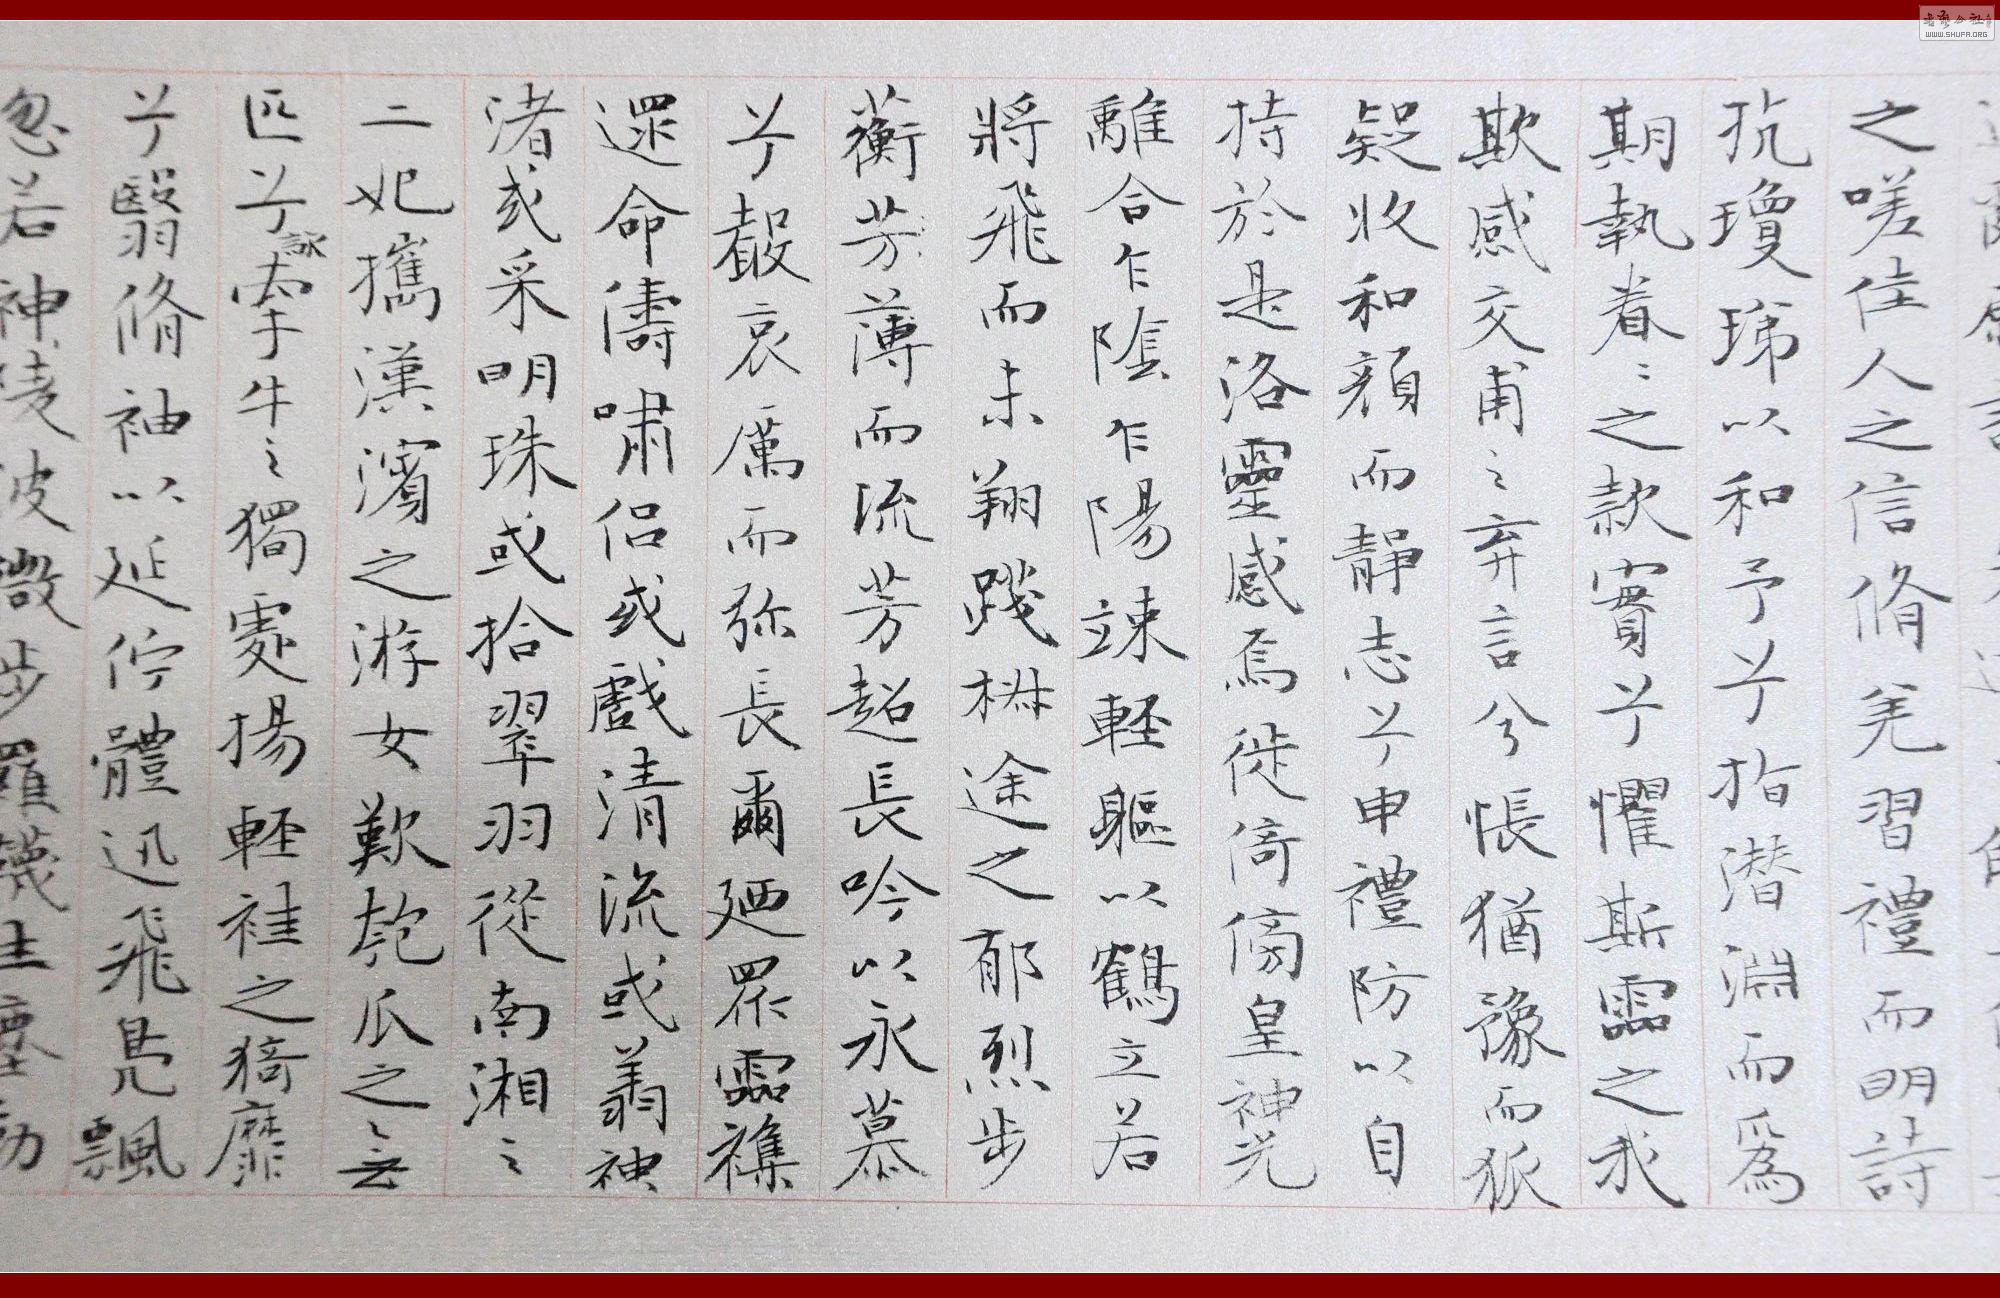 之嗟佳人之信脩羌習禮而明詩
抗瓊珶以和予兮指潛淵而爲
期執眷〻之款實兮懼斯靈之我
欺感交甫之弃言兮悵猶豫而狐
疑收和顏而靜志兮申禮防以自
持於是洛靈感焉徙倚傍皇神光
離合乍陰乍陽竦輕軀以鶴立若
將飛而未翔踐椒途之郁烈步
蘅芳薄而流芳超長吟以永慕
兮聲哀厲而弥長爾廼眾靈雜
遝命儔嘯侶或戲清流或翔神
渚或采明珠或拾翠羽從南湘之
二妃攜漢濱之游女歎匏瓜之之無
匹兮詠牽牛之獨處揚輕袿之猗靡
兮翳脩袖以延佇體迅飛鳧飄
忽若神陵波微步羅襪生塵動
WWW.SHUFA.ORG